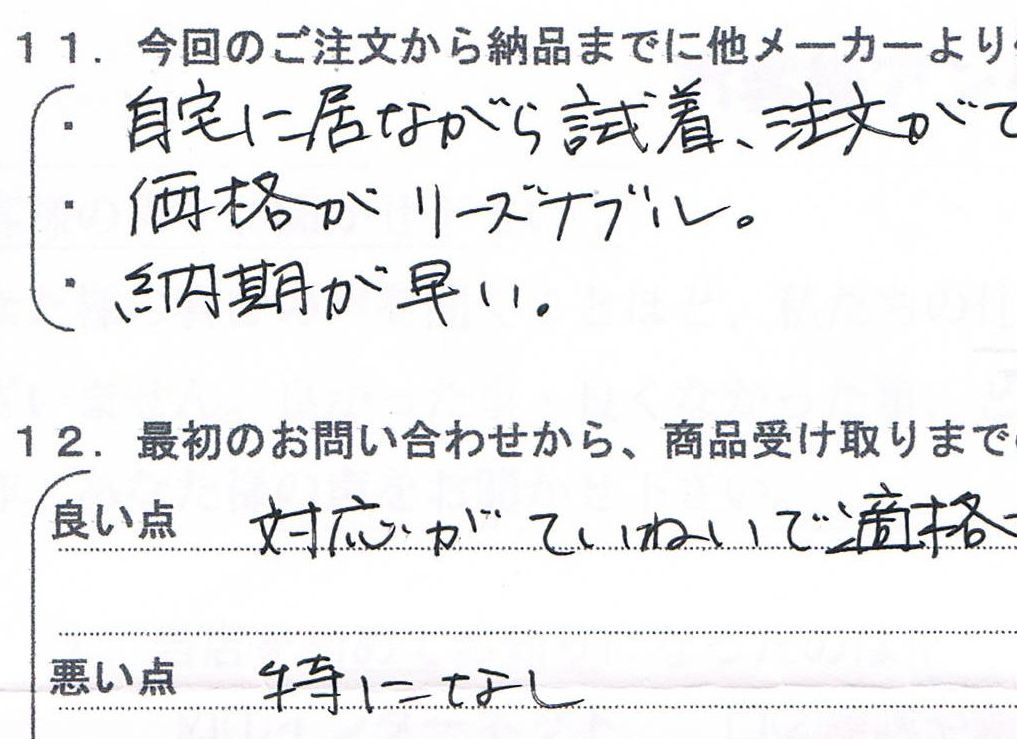 11. 今回のご注文から納品までに他メーカーより
・ 自宅に居ながら試着、注文がで
・ 価格がリーズナブル。
・ 納期が早い。
12. 最初のお問い合わせから、商品受け取りまで
良い点 対応がていねいで適格
悪い点 特になし